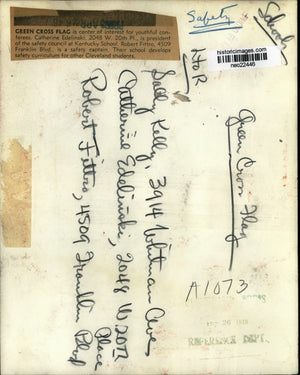 GREEN CROSS FLAG is center of interest for youthful con-
ferees. Catherine Edelinski, 2048 W. 20th Pl., is president
of the safety council at Kentucky School. Robert Fittro, 4509
Franklin Blvd., is a safety captain. Their school develops
safety curriculum for other Cleveland students.
Safety
School
historicimages.com
neo22446
Sally Kelly, 3914 Whitman Ave,
Catherine Edelinski, 2048 W. 20th
Place
Robert Fittro, 4509 Franklin Blvd
Green Cross Flag
A1073
26
REFERENCE DEPT.